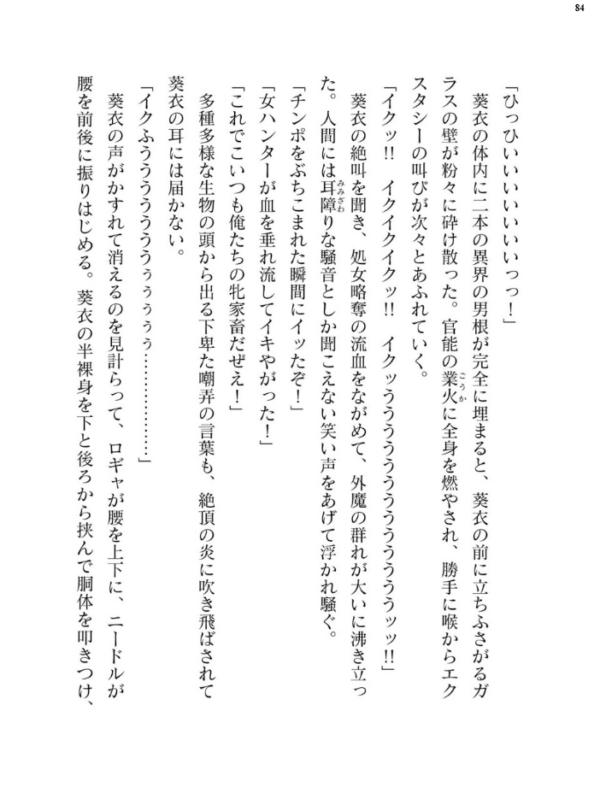 84
「ひっひいいいいいいいっっ！」
　葵衣の体内に二本の異界の男根が完全に埋まると、葵衣の前に立ちふさがるガ
ラスの壁が粉々に砕け散った。官能の業火に全身を燃やされ、勝手に喉からエク
スタシーの叫びが次々とあふれていく。
「イクッ!!　イクイクイクッ!!　イクッうううううううううううううッッ!!」
　葵衣の絶叫を聞き、処女略奪の流血をながめて、外魔の群れが大いに沸き立っ
た。人間には耳障りな騒音としか聞こえない笑い声をあげて浮かれ騒ぐ。
「チンポをぶちこまれた瞬間にイッたぞ！」
「女ハンターが血を垂れ流してイキやがった！」
「これでこいつも俺たちの牝家畜だぜえ！」
　多種多様な生物の頭から出る下卑た嘲弄の言葉も、絶頂の炎に吹き飛ばされて
葵衣の耳には届かない。
「イクふうううううううぅぅぅぅぅ………………」
　葵衣の声がかすれて消えるのを見計らって、ロギャが腰を上下に、ニードルが
腰を前後に振りはじめる。葵衣の半裸身を下と後ろから挟んで胴体を叩きつけ、